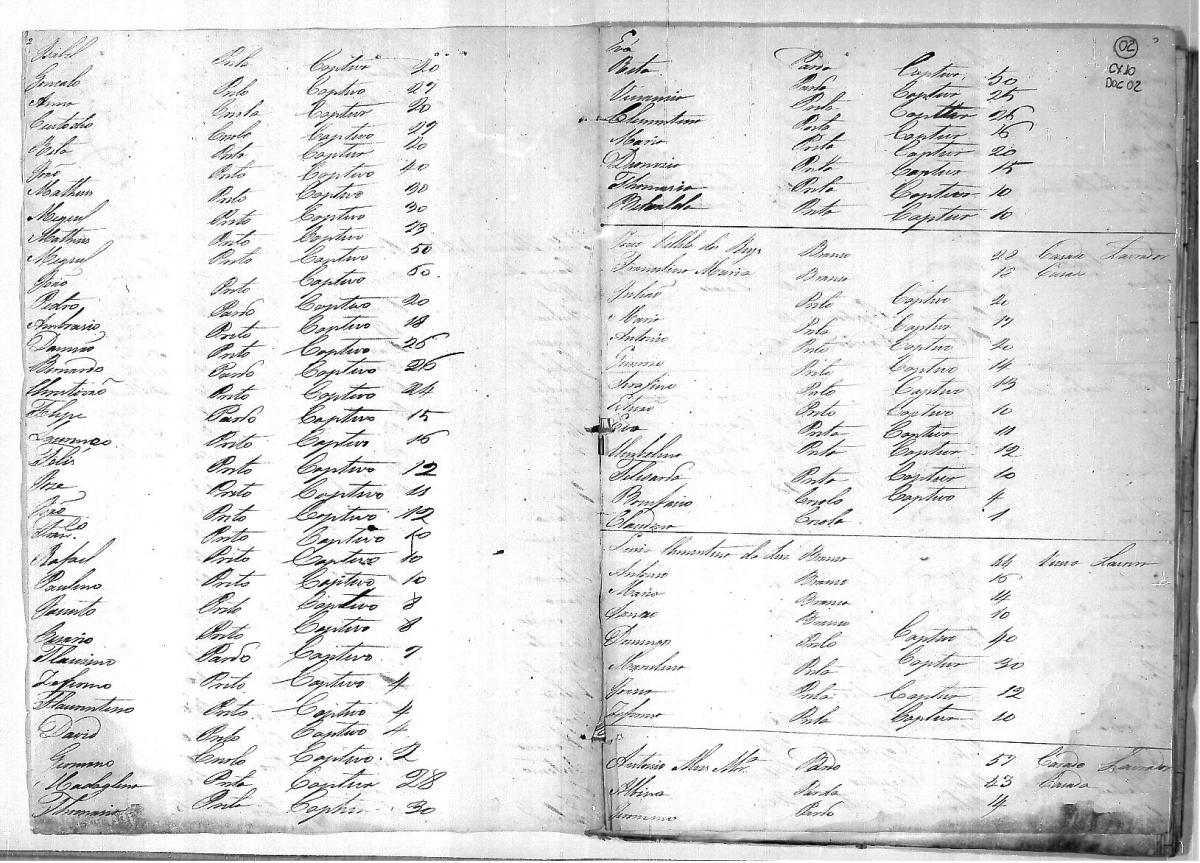 Izabel Preta Captiva 20
Gonsalo Preto Captivo 29
Anna Criola Captiva 20
Custodio Criolo Captivo 29
Rita Preta Captiva 20
João Preto Captivo 40
Matheus Preto Captivo 30
Miguel Preto Captivo 30
Mathias Preto Captivo 23
Miguel Preto Captivo 50
João Preto Captivo 60
Pedro Pardo Captivo 20
Ambrasio Preto Captivo 18
Damião Preto Captivo 26
Bernardo Pardo Captivo 26
Christovão Preto Captivo 24
Felipe Pardo Captivo 15
Lourenço Preto Captivo 16
Felis Preto Captivo 12
Jose Preto Captivo 11
João Preto Captivo 12
Fran.co Preto Captivo 10
Rafael Preto Captivo 10
Paulino Preto Captivo 10
Jacinto Preto Captivo 8
Preto Captivo 8
Flauzino Pardo Captivo 7
Zeferino Preto Captivo 4
Preto Captivo 4
David Preto Captivo 4
Germano Criolo Captivo 2
Madaglena Preta Captiva 28
Thomazia Preta Captiva 30
02
CX10
DOC 02
Eva Parda Captiva 50
Rita Parda Captiva 25
Venancio Preto Captivo 26
Clementino Preto Captivo 16
Maria Preta Captiva 20
Dionizio Preto Captivo 15
Thomazia Preta Captiva 10
Preta Captiva 10
Jose dos Reys Branco 28 Casado Lavrador
Francelina Maria Branca 18 Casada
Julião Preto Captivo 20
Maria Preta Captiva 17
Antonio Preto Captivo 20
Preto Captivo 14
Serafino Preto Captivo 13
Preto Captivo 10
Eva Preta Captiva 11
Umbelina Preta Captiva 12
Felisarda Preta Captiva 10
Bonifacio Criolo Captivo 4
Criola 1
Luis Clementino da Luz Branco 44 Viuvo Lavrador
Antonio Branco 16
Maria Branca 14
Branco 10
Domingos Preto Captivo 40
Preta Captiva 30
Preta Captiva 12
Zeferino Preto Captivo 10
Antonio Pardo 57 Casado Lavrador
Albina Parda 43 Casada
Jeronimo Pardo 14